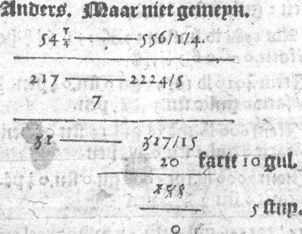 Anders. Maar niet gemeyn.
54 1/4 —— 556/1/4.
217 —— 2224/5
7
31 —— 317/15
20 facit 10 gul.
155
—— 5 stuy.
0